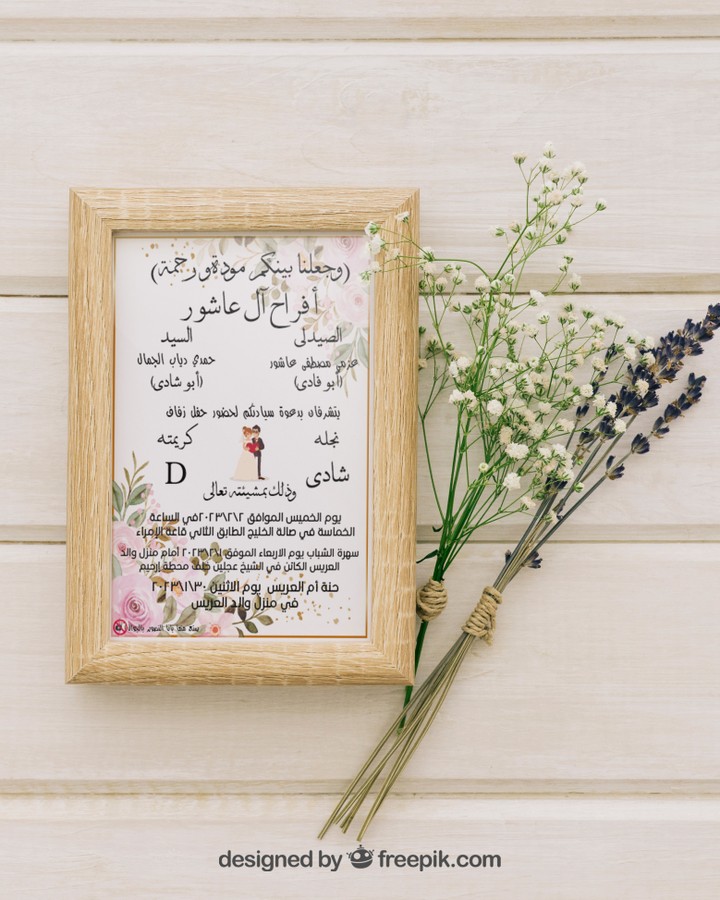 (وجعلنا بينكم مودة ورحمة)
أفراح آل عاشور
الصيدلى
السيد
عزمي مصطفى عاشور
حمدي دياب الجمال
(أبو فادى)
(أبو شادى)
يتشرفان بدعوة سيادتكم لحضور حفل زفاف
نجله
كريمته
شادى
D
وذلك بمشيئته تعالى
يوم الخميس الموافق ٢٠٢٣/٢/٢ في الساعة
الخامسة في صالة الخليج الطابق الثاني قاعة الإمراء
سهرة الشباب يوم الاربعاء الموفق ٢٠٢٣/٢/١ أمام منزل والد
العريس الكائن في الشيخ عجلين خلف محطة إرحيم
حنة أم العريس يوم الاثنين ٢٠٢٣/١/٣٠
في منزل والد العريس
يمنع منعا باتا التصوير بالجوال
designed by freepik.com